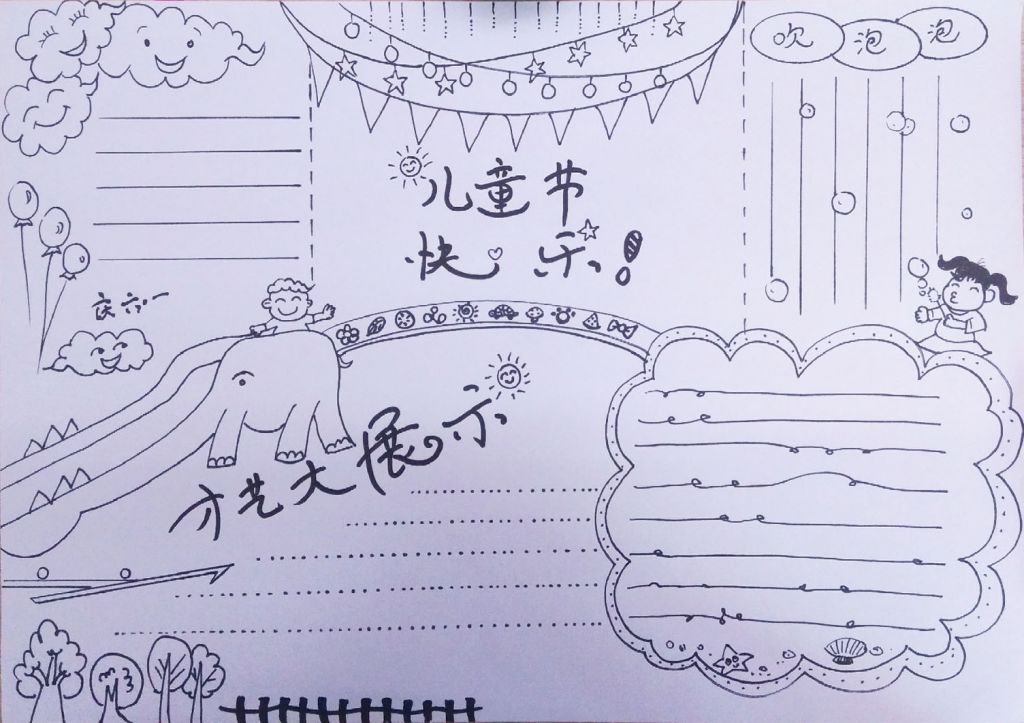 吹泡泡
儿童节
快乐!
庆六·一
才艺大展示